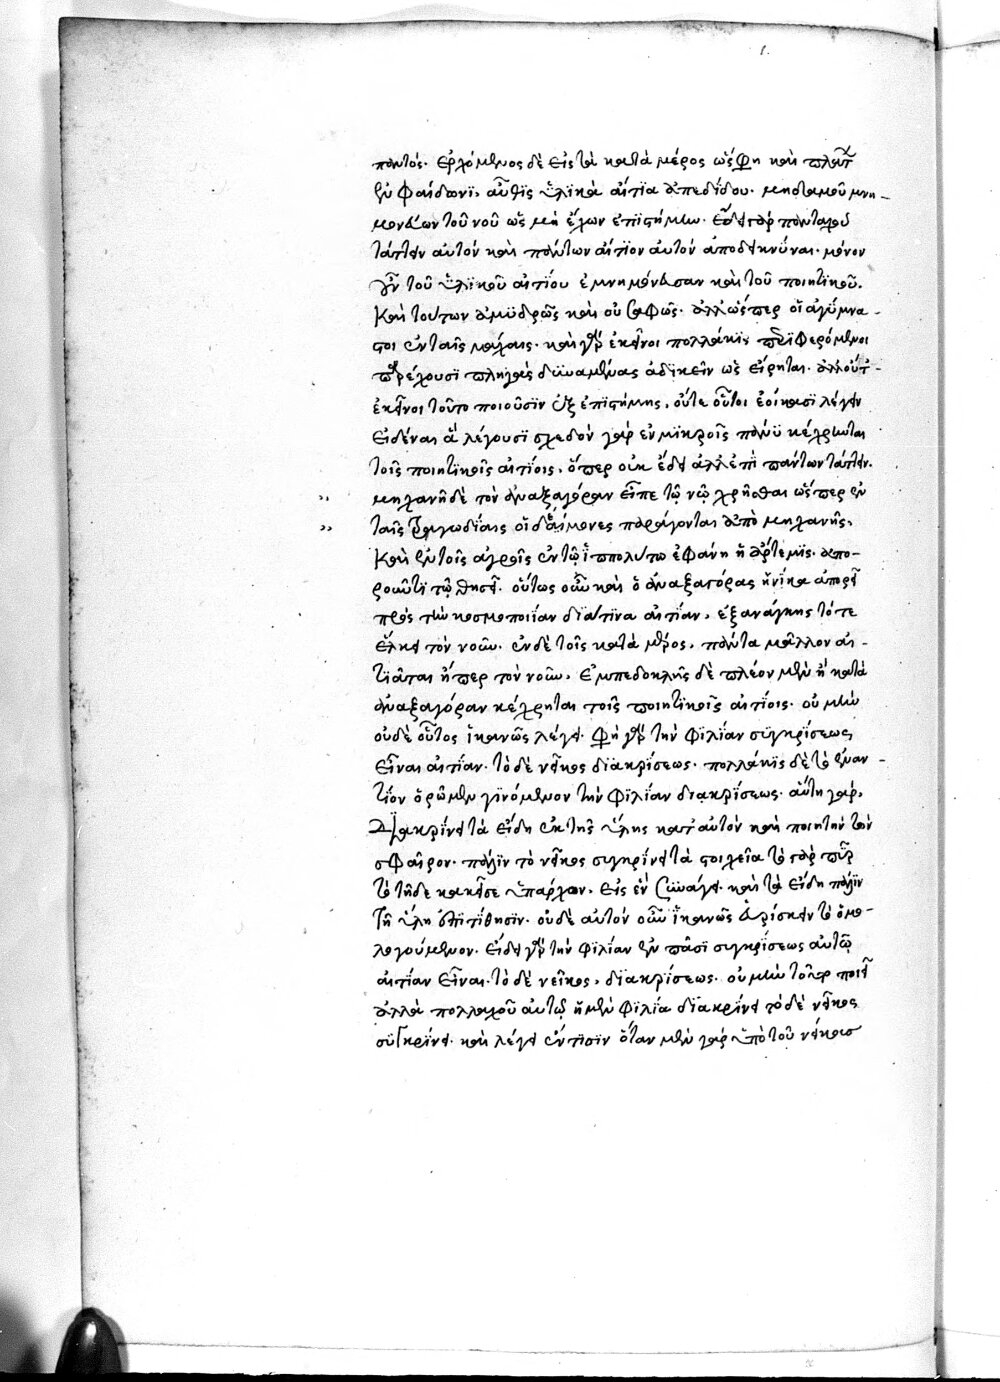 παντός. ἐρχόμενος δὲ εἰς τὰ κατὰ μέρος ὥς φη καὶ πλάτ
ἐν φαίδωνι, αὖθις ὑλικὰ αἴτια ἀπεδίδου. μηδαμοῦ μνη-
μονεύων τοῦ νοῦ ὡς μὴ ἔχων ἐπιστήμην. ἔδει γὰρ πανταχοῦ
τάττειν αὐτὸν καὶ πάντων αἴτιον αὐτὸν ἀποδεικνύναι. μόνον
οὖν τοῦ ὑλικοῦ αἰτίου ἐμνημόνευσαν καὶ τοῦ ποιητικοῦ.
Καὶ τούτων ἀμυδρῶς καὶ οὐ σαφῶς. ἀλλ' ὥσπερ οἱ ἀγύμνα-
στοι ἐν ταῖς μάχαις. καὶ γὰρ ἐκεῖνοι πολλάκις περιφερόμενοι
παρέχουσι πληγὰς δυναμένας ἀδικεῖν ὡς εἴρηται. ἀλλ' οὔτ'
ἐκεῖνοι τοῦτο ποιοῦσιν ἐξ ἐπιστήμης, οὔτε οὗτοι ἐοίκασι λέγειν
εἰδέναι ἃ λέγουσι σχεδὸν γὰρ ἐν μικροῖς πάνυ κέχρηνται
τοῖς ποιητικοῖς αἰτίοις, ὅπερ οὐκ ἔδει ἀλλ' ἐπὶ πάντων τάττειν.
μηχανῇ δὲ τὸν ἀναξαγόραν εἶπε τῷ νῷ χρῆσθαι ὥσπερ ἐν
ταῖς τραγωδίαις οἱ δαίμονες παράγονται ἀπὸ μηχανῆς,
Καὶ ἐν τοῖς ἀγροῖς ἐν τῷ ἱππολύτω ἐφάνη ἡ ἄρτεμις. ἀπο-
ροῦντι τῷ θησεῖ. οὕτως οὖν καὶ ὁ ἀναξαγόρας ἡνίκα ἀπορεῖ
πρὸς τὴν κοσμοποιίαν διὰ τίνα αἰτίαν, ἐξ ἀνάγκης τότε
ἕλκει τὸν νοῦν. ἐν δὲ τοῖς κατὰ μέρος, πάντα μᾶλλον αἰ-
τιᾶται ἤπερ τὸν νοῦν. Ἐμπεδοκλῆς δὲ πλέον μὲν ἢ κατὰ
ἀναξαγόραν κέχρηται τοῖς ποιητικοῖς αἰτίοις. οὐ μὴν
οὐδὲ οὗτος ἱκανῶς λέγει. φὴ γὰρ τὴν φιλίαν συγκρίσεως
εἶναι αἰτίαν. τὸ δὲ νεῖκος διακρίσεως. πολλάκις δὲ τὸ ἐναν-
τίον ὁρῶμεν γινόμενον τὴν φιλίαν διακρίσεως. αὕτη γὰρ,
Διακρίνει τὰ εἴδη ἐκ τῆς ὕλης κατ' αὐτὸν καὶ ποιητὴν τὸν
σφαῖρον. πάλιν τὸ νεῖκος συγκρίνει τὰ στοιχεῖα τὸ γὰρ πῦρ
τὸ τῆδε κἀκεῖσε ὑπάρχον, εἰς ἓν συνάγει. καὶ τὰ εἴδη πάλιν
τῇ ὕλη ἐπιτίθησιν. οὐδὲ αὐτὸν οὖν ἱκανῶς εὑρίσκειν τὸ ὁμο-
λογούμενον. ἔδει γὰρ τὴν φιλίαν ἐν πᾶσι συγκρίσεως αὐτῷ
αἰτίαν εἶναι. τὸ δὲ νεῖκος, διακρίσεως. οὐ μὴν τοῦτο ποιεῖ
ἀλλὰ πολλαχοῦ αὐτῷ ἡ μὲν φιλία διακρίνει τὸ δὲ νεῖκος
συγκρίνει. καὶ λέγει ἔν τισιν ὅταν μὲν γὰρ ὑπὸ τοῦ νείκους